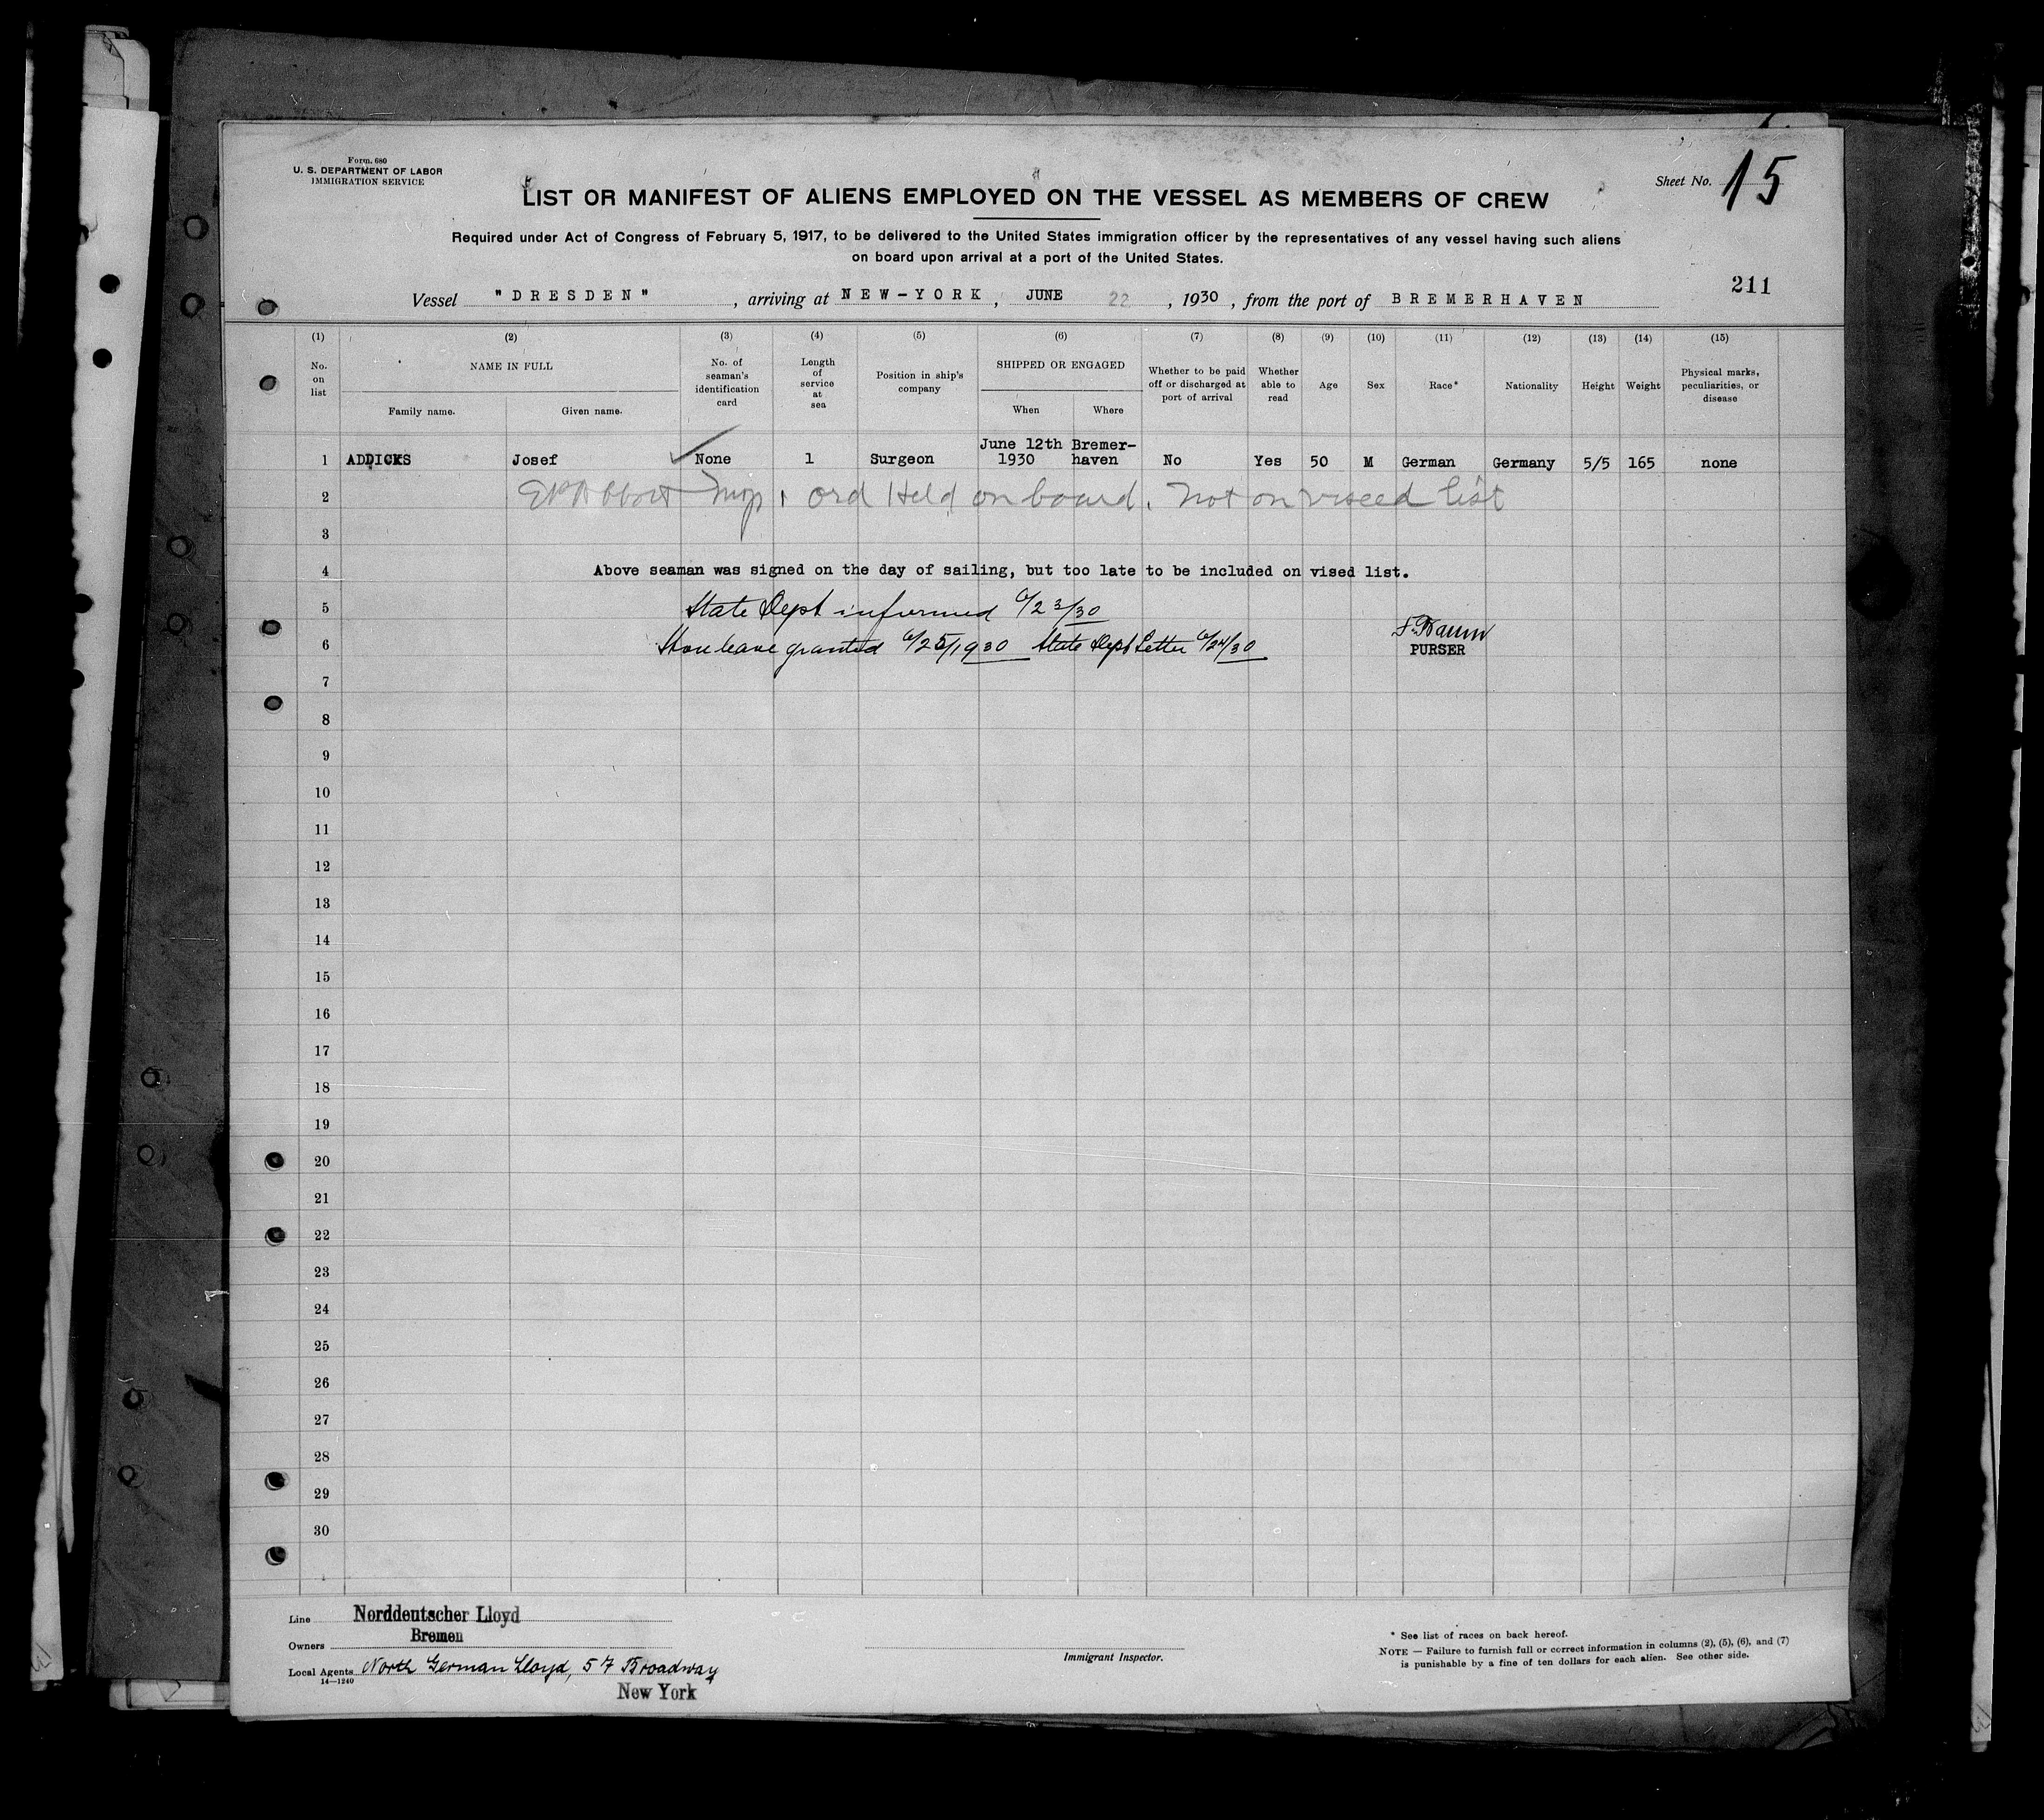 Form. 680
U. S. DEPARTMENT OF LABOR
IMMIGRATION SERVICE
Sheet No. 15
LIST OR MANIFEST OF ALIENS EMPLOYED ON THE VESSEL AS MEMBERS OF CREW
Required under Act of Congress of February 5, 1917, to be delivered to the United States immigration officer by the representatives of any vessel having such aliens
on board upon arrival at a port of the United States.
211
Vessel "DRESDEN", arriving at NEW-YORK, JUNE 22, 1930, from the port of BREMERHAVEN
(1) (2) (3) (4) (5) (6) (7) (8) (9) (10) (11) (12) (13) (14) (15)
No. on list
NAME IN FULL
Family name. Given name.
No. of seaman's identification card
Length of service at sea
Position in ship's company
SHIPPED OR ENGAGED
When Where
Whether to be paid off or discharged at port of arrival
Whether able to read
Age
Sex
Race*
Nationality
Height
Weight
Physical marks, peculiarities, or disease
1 ADDICKS Josef None 1 Surgeon June 12th 1930 Bremer-haven No Yes 50 M German Germany 5/5 165 none
2 ord Held on board. Not on viseed list
3
4 Above seaman was signed on the day of sailing, but too late to be included on vised list.
5 State Dept informed 6/23/30
6 Shore leave granted 6/25/1930 State Dept Letter 6/24/30
PURSER
7
8
9
10
11
12
13
14
15
16
17
18
19
20
21
22
23
24
25
26
27
28
29
30
Line Norddeutscher Lloyd
Owners Bremen
Local Agents North German Lloyd, 57 Broadway
14—1240
New York
Immigrant Inspector.
* See list of races on back hereof.
NOTE — Failure to furnish full or correct information in columns (2), (5), (6), and (7)
is punishable by a fine of ten dollars for each alien. See other side.